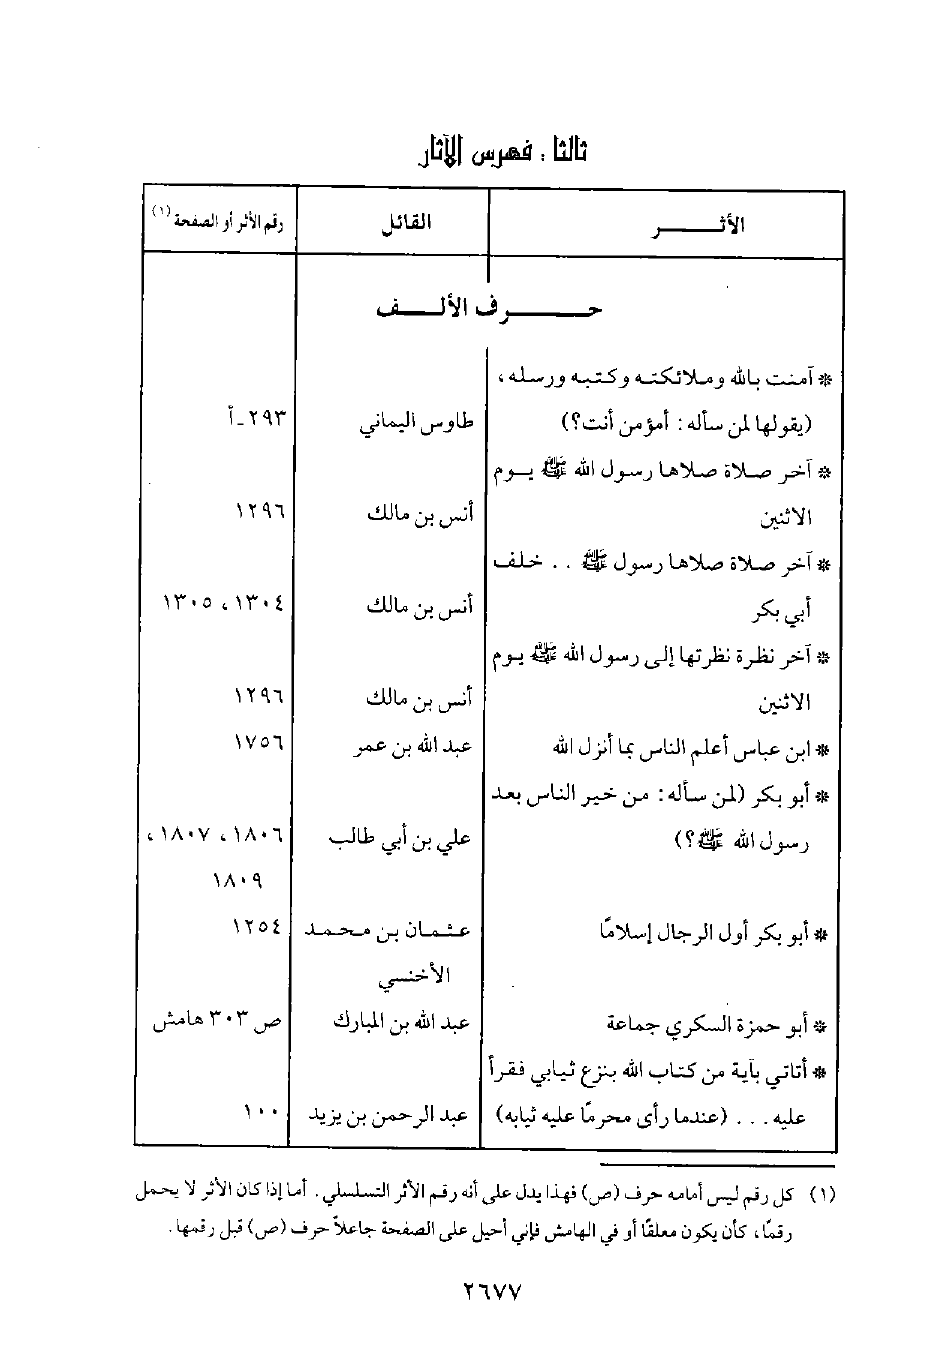 ثالثا : فهرس الآثار
الأثـــــر القائل رقم الأثر أو الصفحة (١)
حـــــرف الألـــف
* آمنت بالله وملائكته وكتبه ورسله،
(يقولها لمن سأله: أمؤمن أنت؟) طاوس اليماني ٢٩٣ـأ
* آخر صلاة صلاها رسول الله ﷺ يـوم
الاثنين أنس بن مالك ١٢٩٦
* آخر صلاة صلاها رسول ﷺ . . خلف
أبي بكر أنس بن مالك ١٣٠٤، ١٣٠٥
* آخر نظرة نظرتها إلى رسول الله ﷺ يـوم
الاثنين أنس بن مالك ١٢٩٦
* ابن عباس أعلم الناس بما أنزل الله عبد الله بن عمر ١٧٥٦
* أبو بكر (لمن سأله: من خير الناس بعد
رسول الله ﷺ؟) علي بن أبي طالب ١٨٠٦، ١٨٠٧،
١٨٠٩
* أبو بكر أول الرجال إسلامًا عثمان بن محمد ١٢٥٤
الأخنسي
* أبو حمزة السكري جماعة عبد الله بن المبارك ص ٣٠٣ هامش
* أتاتي بآية من كتاب الله بنزع ثيابي فقرأ
عليه . . . (عندما رأى محرمًا عليه ثيابه) عبد الرحمن بن يزيد ١٠٠
(١) كل رقم ليس أمامه حرف (ص) فهذا يدل على أنه رقم الأثر التسلسلي. أما إذا كان الأثر لا يحمل
رقمًا، كأن يكون معلقًا أو في الهامش فإني أحيل على الصفحة جاعلاً حرف (ص) قبل رقمها.
٢٦٧٧